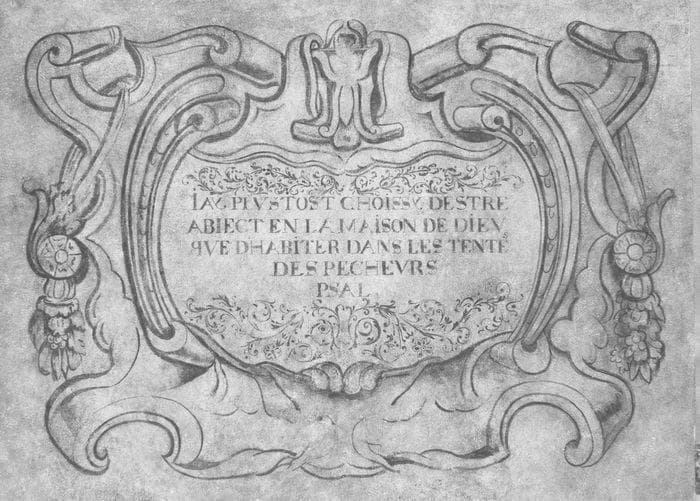 IAY PLVSTOST CHOISSY DESTRE
ABIECT EN LA MAISON DE DIEV
QVE DHABITER DANS LES TENTE
DES PECHEVRS
PSAL